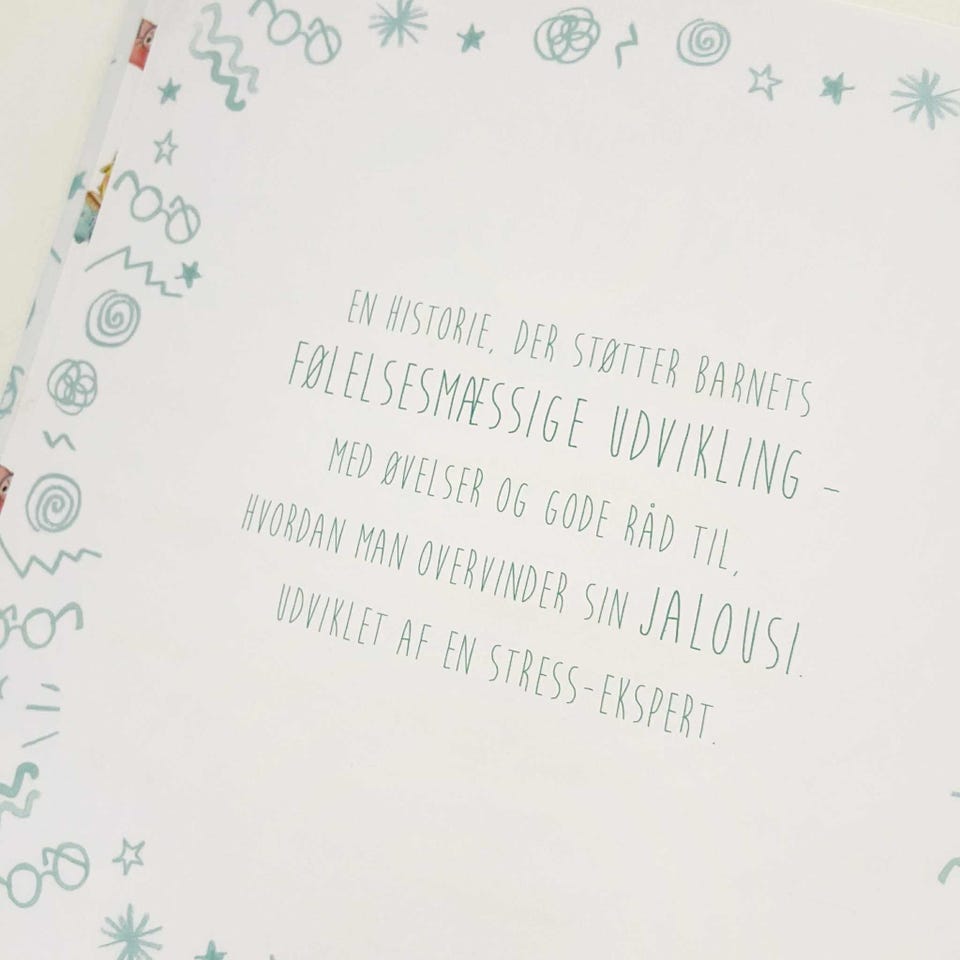 EN HISTORIE, DER STØTTER BARNETS
FØLELSESMÆSSIGE UDVIKLING –
MED ØVELSER OG GODE RÅD TIL,
HVORDAN MAN OVERVINDER SIN JALOUSI.
UDVIKLET AF EN STRESS-EKSPERT.